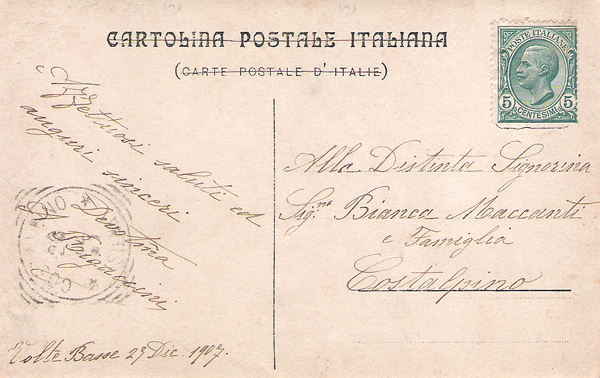 CARTOLINA POSTALE ITALIANA
(CARTE POSTALE D'ITALIE)
POSTE ITALIANE
5 5
CENTESIMI
Affettuosi saluti ed
auguri sinceri
Devma
Volte Basse 23 Dic. 1907.
Alla Distinta Signorina
Sig.na Bianca Maccanti
e Famiglia
Costalpino